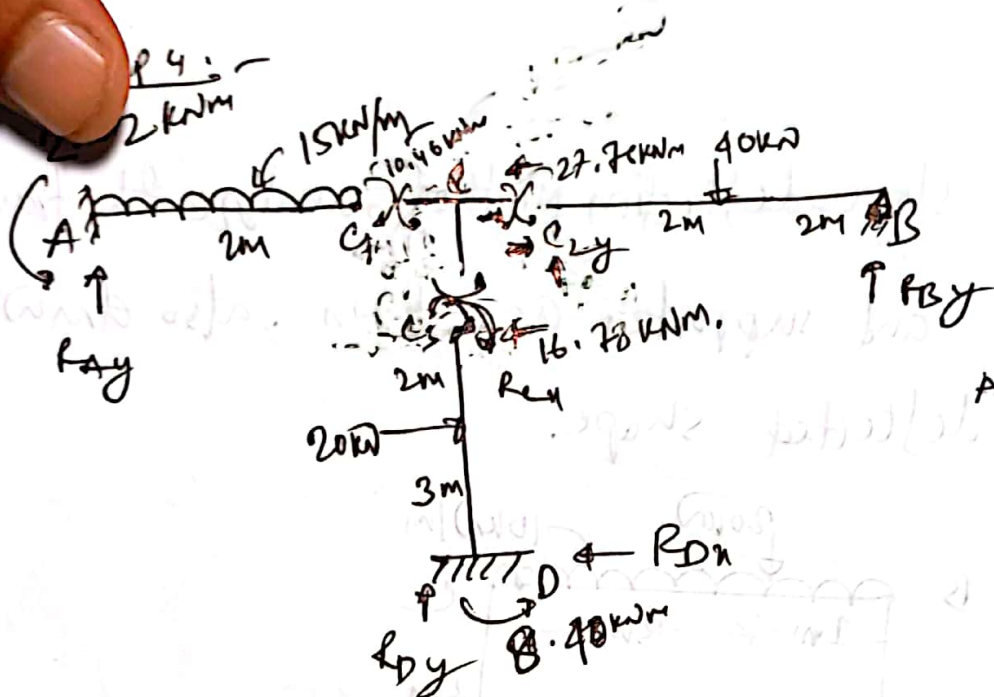 P 4 :-
2 KNM
15KN/m
10.46 KNM
27.78 KNM
40KN
A
2m
C1
C
C2y
2m
2m
B
RAy
RBy
C3
16.78 KNM.
2m
20KN
3m
RDx
D
RDy
8.40 KNM